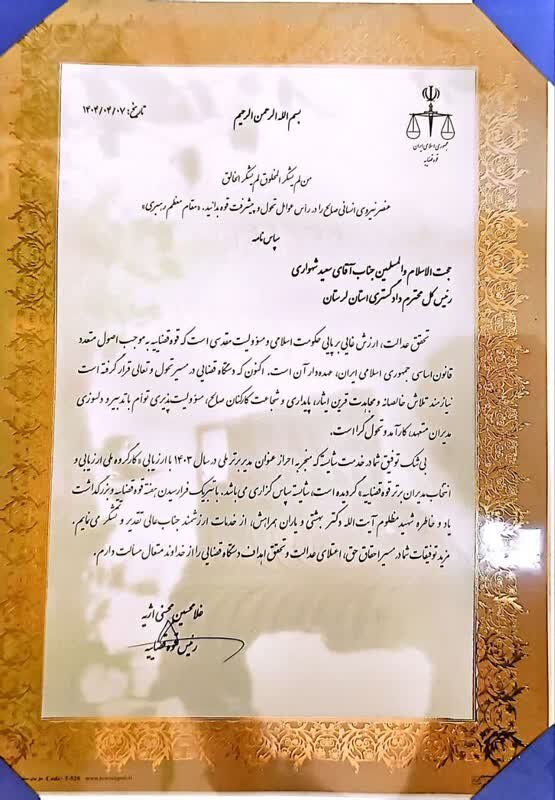 بسم الله الرحمن الرحیم
تاریخ: ۱۴۰۴/۰۴/۰۷
جمهوری اسلامی ایران
قوه قضاییه
من لم یشکر المخلوق لم یشکر الخالق
عنصر نیروی انسانی صالح را در رأس عوامل تحول و پیشرفت قوه بدانید. «مقام معظم رهبری»
سپاس نامه
حجت الاسلام والمسلمین جناب آقای سعید شهواری
رئیس کل محترم دادگستری استان لرستان
تحقق عدالت، ارزش غایی برپایی حکومت اسلامی و مسؤولیت مقدسی است که قوه قضاییه به موجب اصول متعدد
قانون اساسی جمهوری اسلامی ایران، عهده‌دار آن است. اکنون که دستگاه قضایی در مسیر تحول و تعالی قرار گرفته است
نیازمند تلاش خالصانه و مجاهدت قرین ایثار، پایداری و شجاعت کارکنان صالح، مسؤولیت‌پذیری توأم با تدبیر و دلسوزی
مدیران متعهد، کارآمد و تحول گرا است.
بی شک توفیق شما در خدمت شایسته که منجر به احراز عنوان مدیر برتر ملی در سال ۱۴۰۳ با ارزیابی «کارگروه ملی ارزیابی و
انتخاب مدیران برتر قوه قضاییه» گردیده است، شایسته سپاس گزاری می باشد. با تبریک فرارسیدن هفته قوه قضاییه و بزرگداشت
یاد و خاطره شهید مظلوم آیت الله دکتر بهشتی و یاران همراهش، از خدمات ارزشمند جناب عالی تقدیر و تشکر می نمایم.
مزید توفیقات شما در مسیر احقاق حق، اعتلای عدالت و تحقق اهداف دستگاه قضایی را از خداوند متعال مسألت دارم.
غلامحسین محسنی اژیه
رئیس قوه قضاییه
Code: T-526